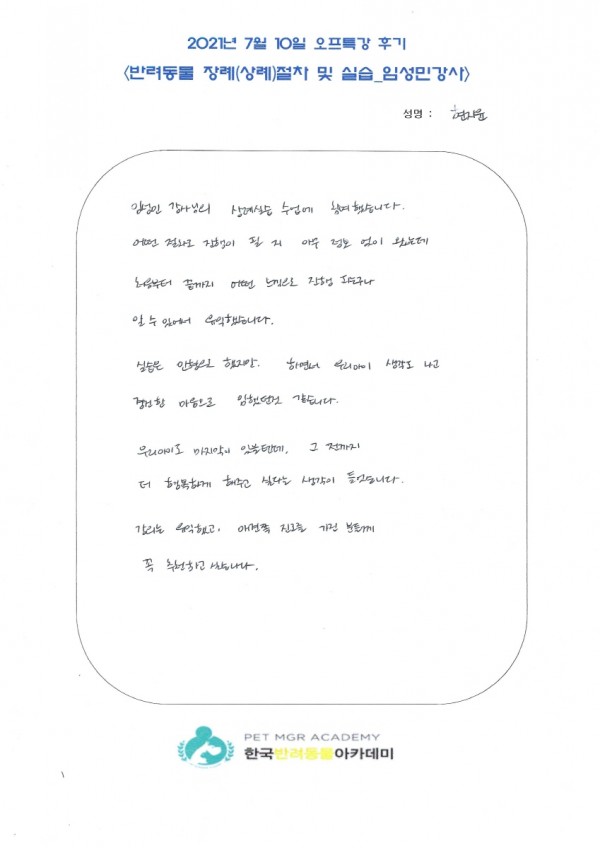 2021년 7월 10일 오프특강 후기
<반려동물 장례(상례)절차 및 실습_임성민강사>
성명 : 현지윤
임성민 강사님의 상례실습 수업에 참여했습니다.
어떤 절차로 진행이 될 지 아무 정보 없이 왔는데
처음부터 끝까지 어떤 느낌으로 진행 되는구나
알 수 있어서 유익했습니다.
실습은 인형으로 했지만. 하면서 우리아이 생각도 나고
경건한 마음으로 임했던것 같습니다.
우리아이도 마지막이 있을텐데, 그 전까지
더 행복하게 해주고 싶다는 생각이 들었습니다.
강의는 유익했고, 애견쪽 진로를 가진 분들께
꼭 추천하고 싶습니다.
PET MGR ACADEMY
한국반려동물아카데미